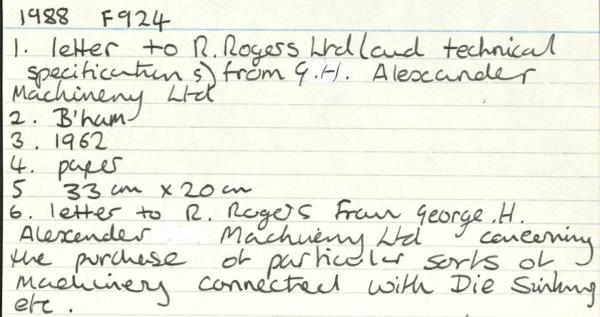 1988 F924
1. letter to R. Rogers Ltd (and technical
specifications) from G.H. Alexander
Machinery Ltd
2. B'ham
3. 1962
4. paper
5 33 cm x 20 cm
6. letter to R. Rogers from George.H.
Alexander Machinery Ltd concerning
the purchase of particular sorts of
machinery connected with Die Sinking
etc.